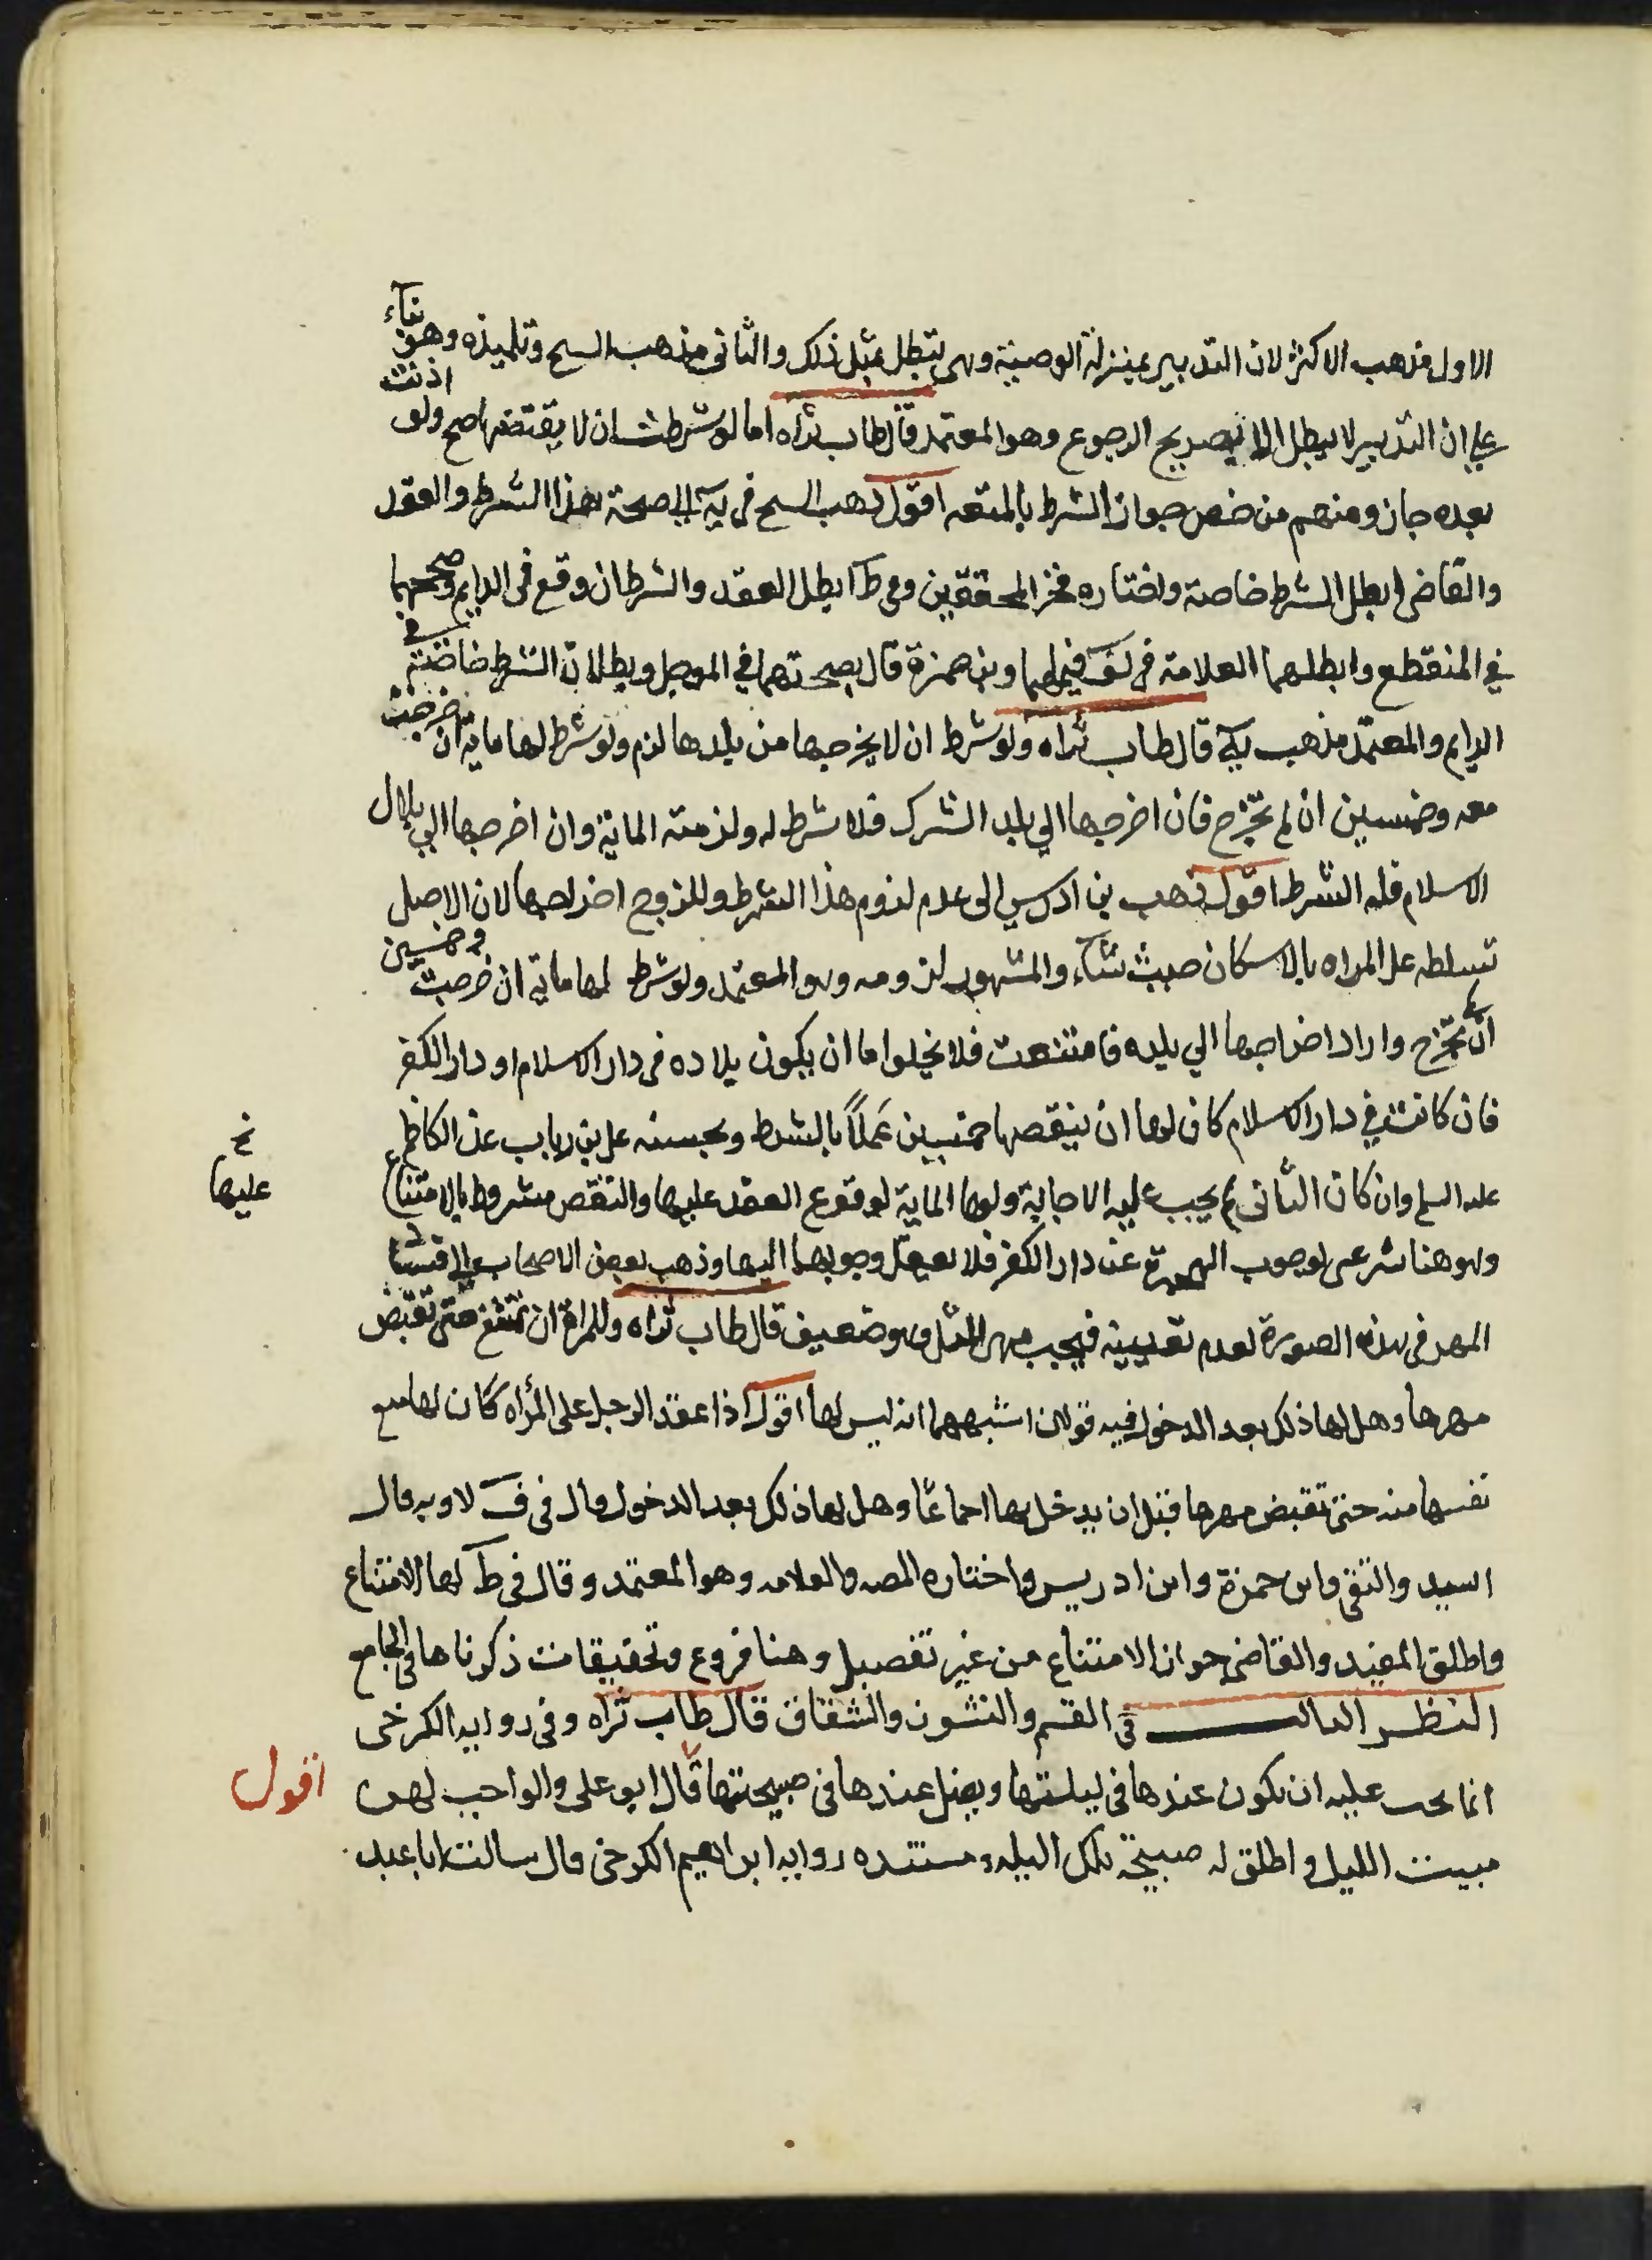 الاول مذهب الاكثر لان التدبير بمنزلة الوصية وهى تبطل بمثل ذلك والثانى مذهب الشيخ وتلميذه وهو بناء
على ان التدبير لا يبطل الا بصريح الرجوع وهو المعتمد قال طاب ثراه اما لو شرطت ان لا يقتضها صح ولو اذنت
بعده جاز ومنهم من خص جواز الشرط بالمتعه اقول ذهب الشيخ فى يه الى صحة هذا الشرط والعقد
والقاضى ابطل الشرط خاصة واختاره فخر المحققين وفى ط ابطل العقد والشرط ان وقع فى الدايم وصححهما
في المنقطع وابطلهما العلامة فى لف فيهما وبن حمزة قال بصحتهما في الموجل وبطلان الشرط خاصة في
الدايم والمعتمد مذهب يه قال طاب ثراه ولو شرط ان لا يخرجها من بلدها لزم ولو شرط لها ماية ان خرجت
معه وخمسين ان لم تخرج فان اخرجها الي بلد الشرك فلا شرط له ولزمته الماية وان اخرجها الي بلاد
الاسلام فله الشرط اقول ذهب بن ادريس الى عدم لزوم هذا الشرط وللزوج اخراجها لان الاصل
تسلطه على المراه بالاسكان حيث شاء والمشهور لزومه وهو المعتمد ولو شرط لها ماية ان خرجت وخمسين
ان لم تخرج واراد اخراجها الي بلده فامتنعت فلا يخلوا ما ان يكون بلاده فى دار الاسلام او دار الكفر
فان كانت في دار الاسلام كان لها ان ينقصها خمسين عملاً بالشرط وبحسنه على بن رياب عن الكاظم
عليه السلم وان كان الثانى لم يجب عليه الاجابة ولها الماية لوقوع العقد عليها والنقص مشروط بالامتناع
نخ عليها
وهو هنا شرعى لوجوب الهجرة عن دار الكفر فلا يعقل وجوبها اليها وذهب بعض الاصحاب الى فساد
المهر فى هذه الصورة لعدم تعيينه فيجب مهر المثل وهو ضعيف قال طاب ثراه وللمراة ان تمتنع حتى تقبض
مهرها وهل لها ذلك بعد الدخول فيه قولان اشبههما انه ليس لها اقول اذا عقد الرجل على المرأه كان لها منع
نفسها منه حتى تقبض مهرها قبل ان يدخل بها اجماعًا وهل لها ذلك بعد الدخول قال فى ف لا وبه قال
السيد والتقى وابن حمزة وابن ادريس واختاره المص والعلامه وهو المعتمد وقال فى ط لها الامتناع
واطلق المفيد والقاضى جواز الامتناع من غير تفصيل وهنا فروع وتحقيقات ذكرناها فى الجامع
النظر الثالث فى القسم والنشوز والشقاق قال طاب ثراه وفى روايه الكرخى
انما يجب عليه ان يكون عندها فى ليلتها ويضل عندها فى صبيحتها قال ابو على والواجب لهن
اقول
مبيت الليل واطلق له صبيحة تلك الليله ومستنده روايه ابراهيم الكرخى قال سالت ابا عبد